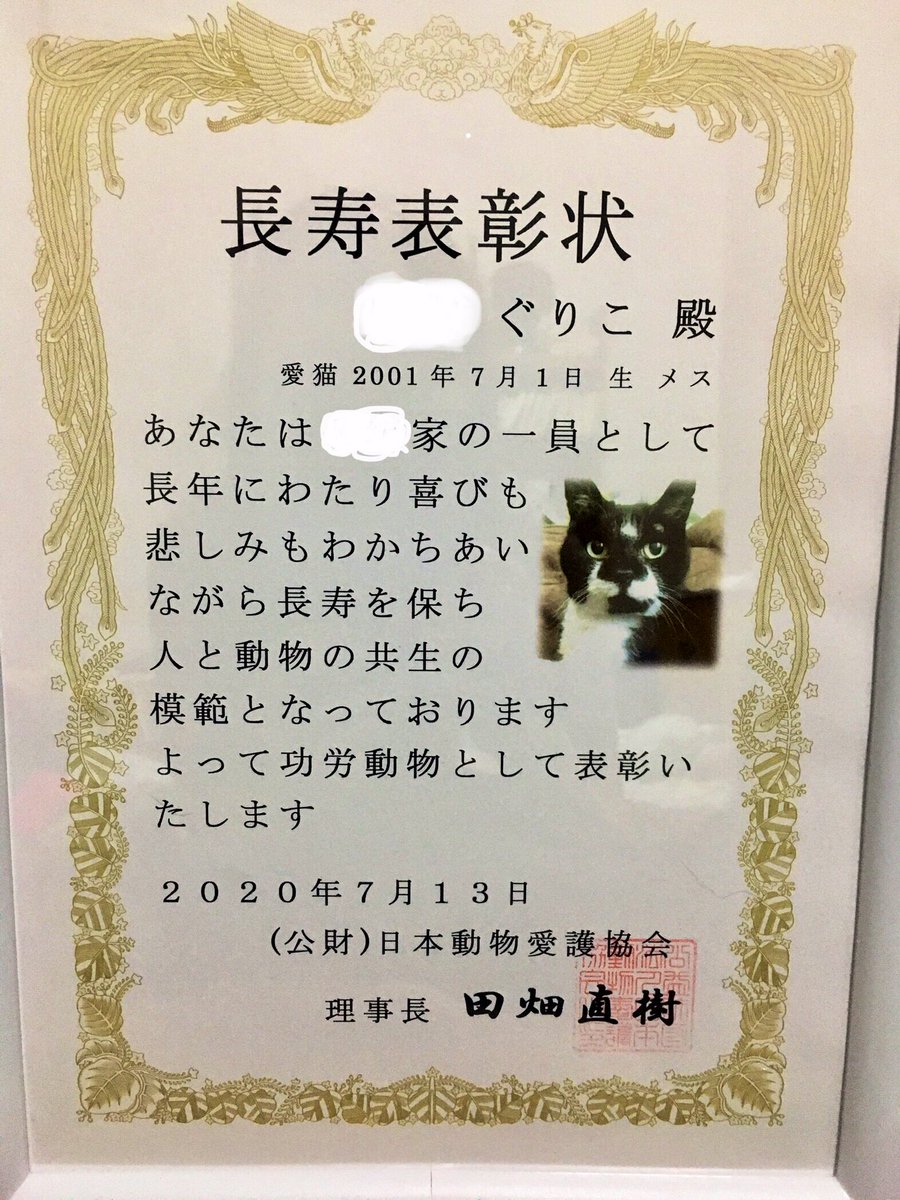 長寿表彰状
ぐりこ 殿
愛猫 2001年7月1日 生 メス
あなたは 家の一員として
長年にわたり喜びも
悲しみもわかちあい
ながら長寿を保ち
人と動物の共生の
模範となっております
よって功労動物として表彰い
たします
２０２０年７月１３日
(公財)日本動物愛護協会
理事長 田畑直樹